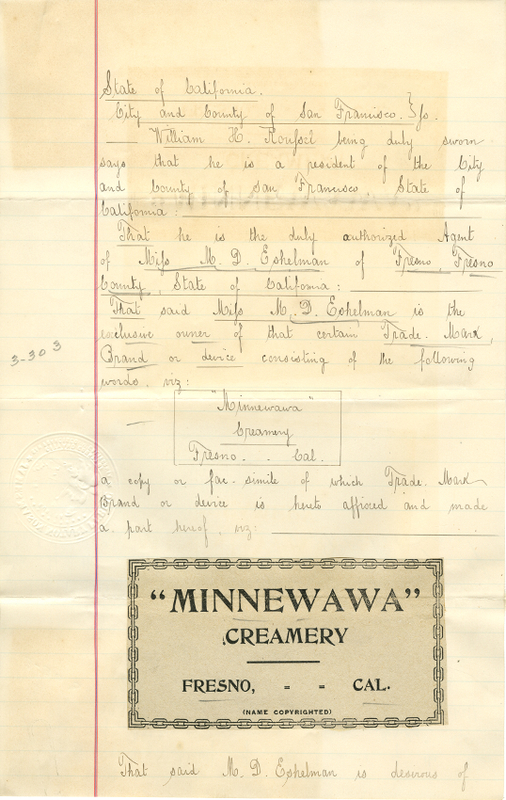 State of California.
City and County of San Francisco. } ss.
William H. Roussel being duly sworn
says that he is a resident of the City
and County of San Francisco State of
California:
That he is the duly authorized Agent
of Miss M. D. Eshelman of Fresno, Fresno
County, State of California:
That said Miss M. D. Eshelman is the
exclusive owner of that certain Trade. Mark,
Brand or device consisting of the following
words, viz:
3-303
"Minnewawa"
Creamery
Fresno. . Cal.
a copy or fac. simile of which Trade. Mark
Brand or device is hereto affixed and made
a part hereof, viz:
"MINNEWAWA"
CREAMERY
FRESNO, - - CAL.
(NAME COPYRIGHTED)
That said M. D. Eshelman is desirous of